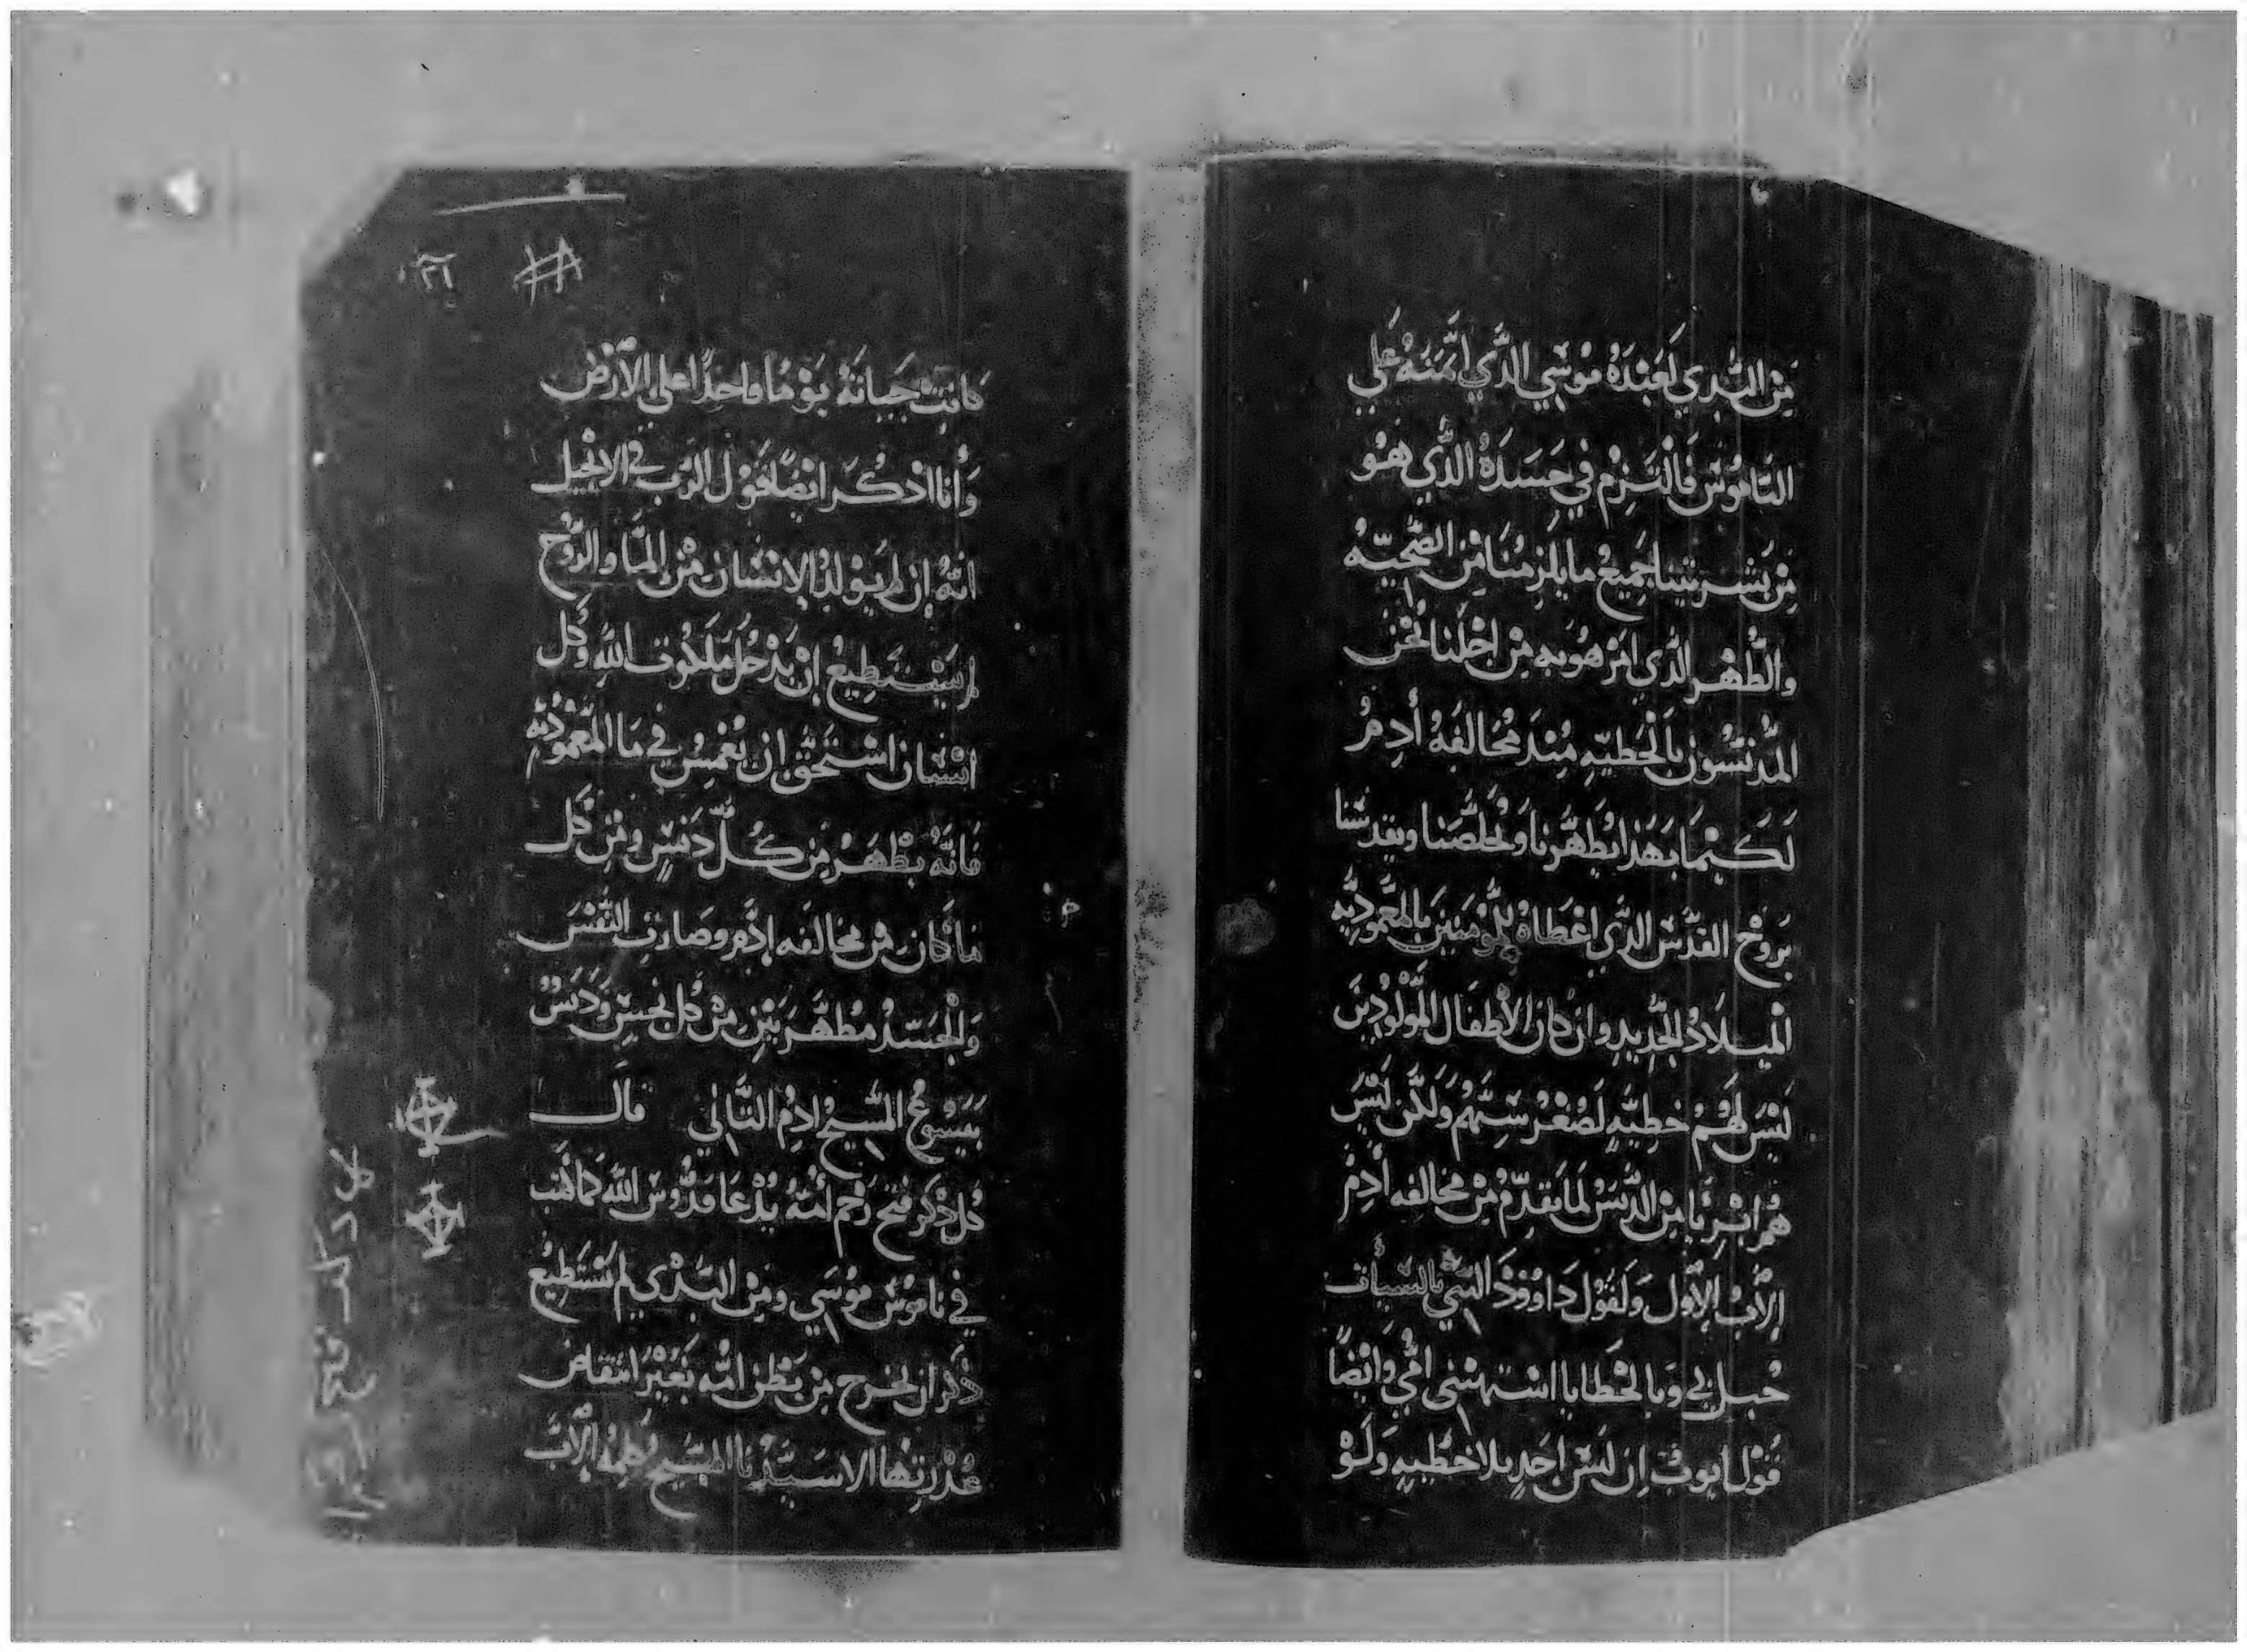 مِنَ البَدي لَعَبْدَهُ مُوسَي الذَّي ايمَنَهُ عَلَي
النَامُوسَ فَالْتَزمْ في جَسَدَهُ الذَّي هُو
مِن بَشرِيتنا جَمِيعْ ما يلزمُنا مِن الضَحيّه
والطُهْر الذَّي امَرْ هُو به مِنْ اجْلَنا نُحْن
المُدنسُون بالخطيّهِ مِنْد مُخالفَهُ أدمُ
لَكيْما بهَذا يُطَهّرنا وُيخلصَنا ويقدسَنا
بَروُحْ القدَسْ الذَّي اعْطاهْ للمُومنينَ بالمعُموديّه
الميلادْ الجَديدِ وان كان الأطفال المُوْلُودُينَ
ليْسَ لَهُمْ خطِيَّهِ لصُغْرْ سَنّهُم ولَكن لَيْسَ
هُمْ ابْرِيا مِنْ الدَنسْ لما تقدّمُ مِن مخالفه أدمْ
الأبْ الأول وَلقَوْل دَاوُودَ النَبّي بالسَيأت
حُبل بي وَبالخَطايا اشتهتني امُي وَايْضًا
قَوْل ايوب ان لَيسَ احَدٍ بلا خطيهِ وَلَوْ
٢٦
كانت حَياتهُ يَوْمًا واحِدًا علي الأرْضِ
وَأنا اذْكُرْ ايْضًا قَوْل الرَب في الانجيل
انَهُ إن لم يَولدْ الانسْان مْن الما والرُوْح
لم يسْتَطِيعْ انْ يَدْخُل مَلَكُوت الله وَكُل
انْسْان اسْتَحَقْ ان يُغْمِسْ في مَا المَعْمُوديّه
فَانَهُ يطْهَرْ مِن كُلّ دَنسٍ ومِن كُل
ما كان مْن مخالفه ادَم وصَارَت النَفْسَ
وَالجَسَدْ مُطهَّرَيْنِ مْن كُل نجسٍ وَدَنسْ
بيسُوعْ المسَيحْ ادَمْ الثَاني قال
كُل ذكَر فتحْ رَحْم أمُهُ يُدْعَا قدُوس الله كما كُتب
في نامُوسْ مُوسَي ومِنْ البَدْي لم يَسْتطِيعْ
ذكَر ان يخرج مِن بَطْن امُه بَغَيْرْ انتقاض
عُذْريتها الا سَيّدْنا المسَيحْ كلِمهُ الأبْ
كل دكر فتح رحم امه